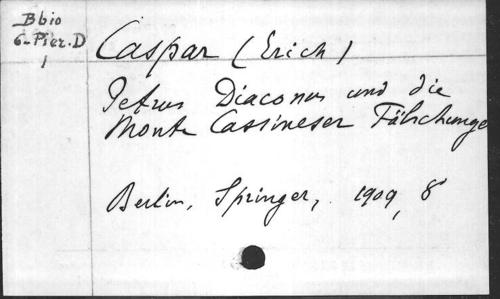 Bbio
6-Pier.D
1
Caspar (Erich)
Petrus Diaconus und die
Monte Cassineser Fälschunge
Berlin, Springer, 1909, 8°